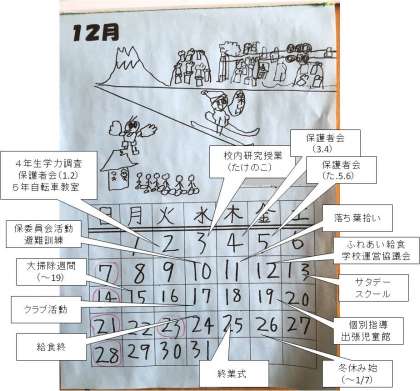 12月
4年生学力調査
保護者会(1.2)
5年自転車教室
校内研究授業
(たけのこ)
保護者会
(3.4)
保護者会
(た.5.6)
保委員会活動
避難訓練
落ち葉拾い
ふれあい給食
学校運営協議会
大掃除週間
(~19)
サタデー
スクール
クラブ活動
個別指導
出張児童館
給食終
終業式
冬休み始
(~1/7)
日 月 火 水 木 金 土
1 2 3 4 5 6
7 8 9 10 11 12 13
14 15 16 17 18 19 20
21 22 23 24 25 26 27
28 29 30 31